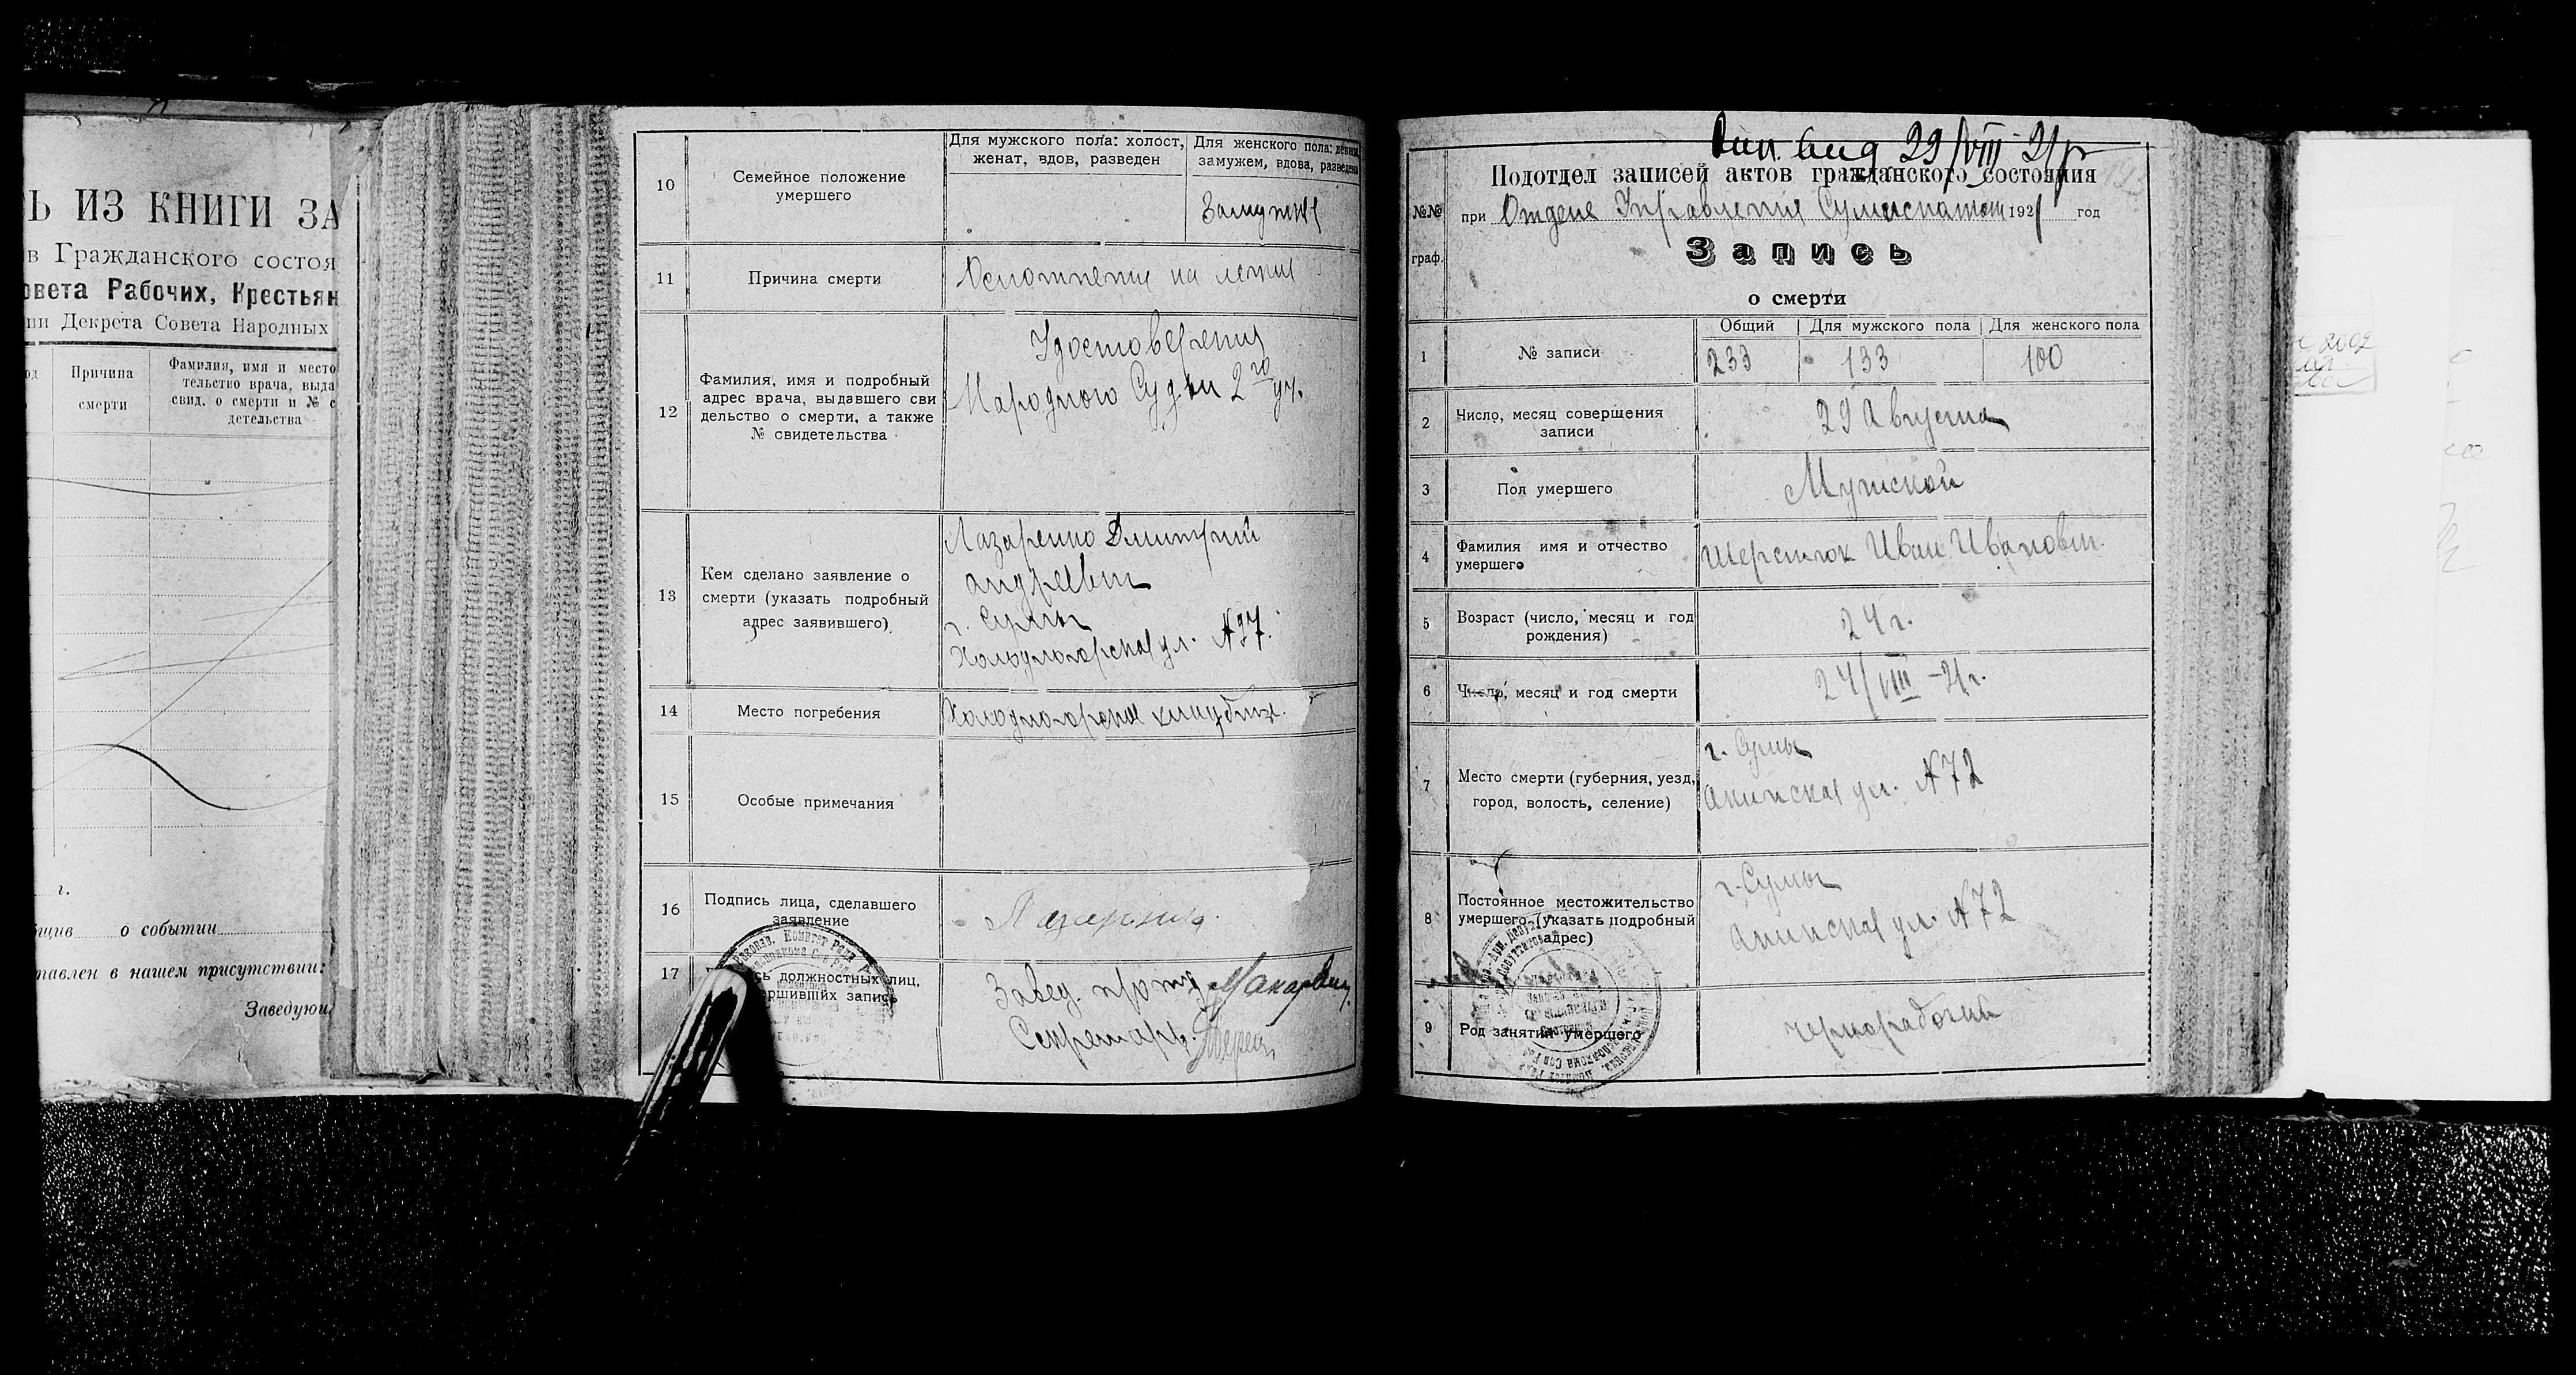 Ь ИЗ КНИГИ ЗА
в Гражданского состоя
овета Рабочих, Крестьян
ии Декрета Совета Народных
Причина смерти
Фамилия, имя и место
тельство врача, выда
свид. о смерти и № с
детельства
г.
бщив о событии
тавлен в нашем присутствии:
Заведую
10 Семейное положение умершего
Для мужского пола: холост, женат, вдов, разведен
Для женского пола: девица, замужем, вдова, разведена
Замужняя
11 Причина смерти
Осложнение на легких
12 Фамилия, имя и подробный адрес врача, выдавшего сви
дельство о смерти, а также № свидетельства
Удостоверения
Народного Судьи 2го уч.
13 Кем сделано заявление о смерти (указать подробный адрес заявившего)
Лазаренко Дмитрий
Андреевич
г. Сумы
Холодногорская ул. №37.
14 Место погребения
Холодногорское кладбище.
15 Особые примечания
16 Подпись лица, сделавшего заявление
Лазаренко.
17 сь должностных лиц, ершивших запись
Завед. п/отд
Секретарь.
29/VIII 21 г
Подотдел записей актов гражданского состояния
№№ граф.
при Отделе Управления 1921 год
Запись
о смерти
1 № записи
Общий Для мужского пола Для женского пола
233 133 100
2 Число, месяц совершения записи
29 Августа
3 Пол умершего
Мужской
4 Фамилия имя и отчество умершего
Шерстюк Иван Иванович.
5 Возраст (число, месяц и год рождения)
24 г.
6 Число, месяц и год смерти
24/VIII-21 г.
7 Место смерти (губерния, уезд, город, волость, селение)
г. Сумы
ул. №72
8 Постоянное местожительство умершего (указать подробный адрес)
г. Сумы
ул. №72
9 Род занятий умершего
чернорабочий
2002